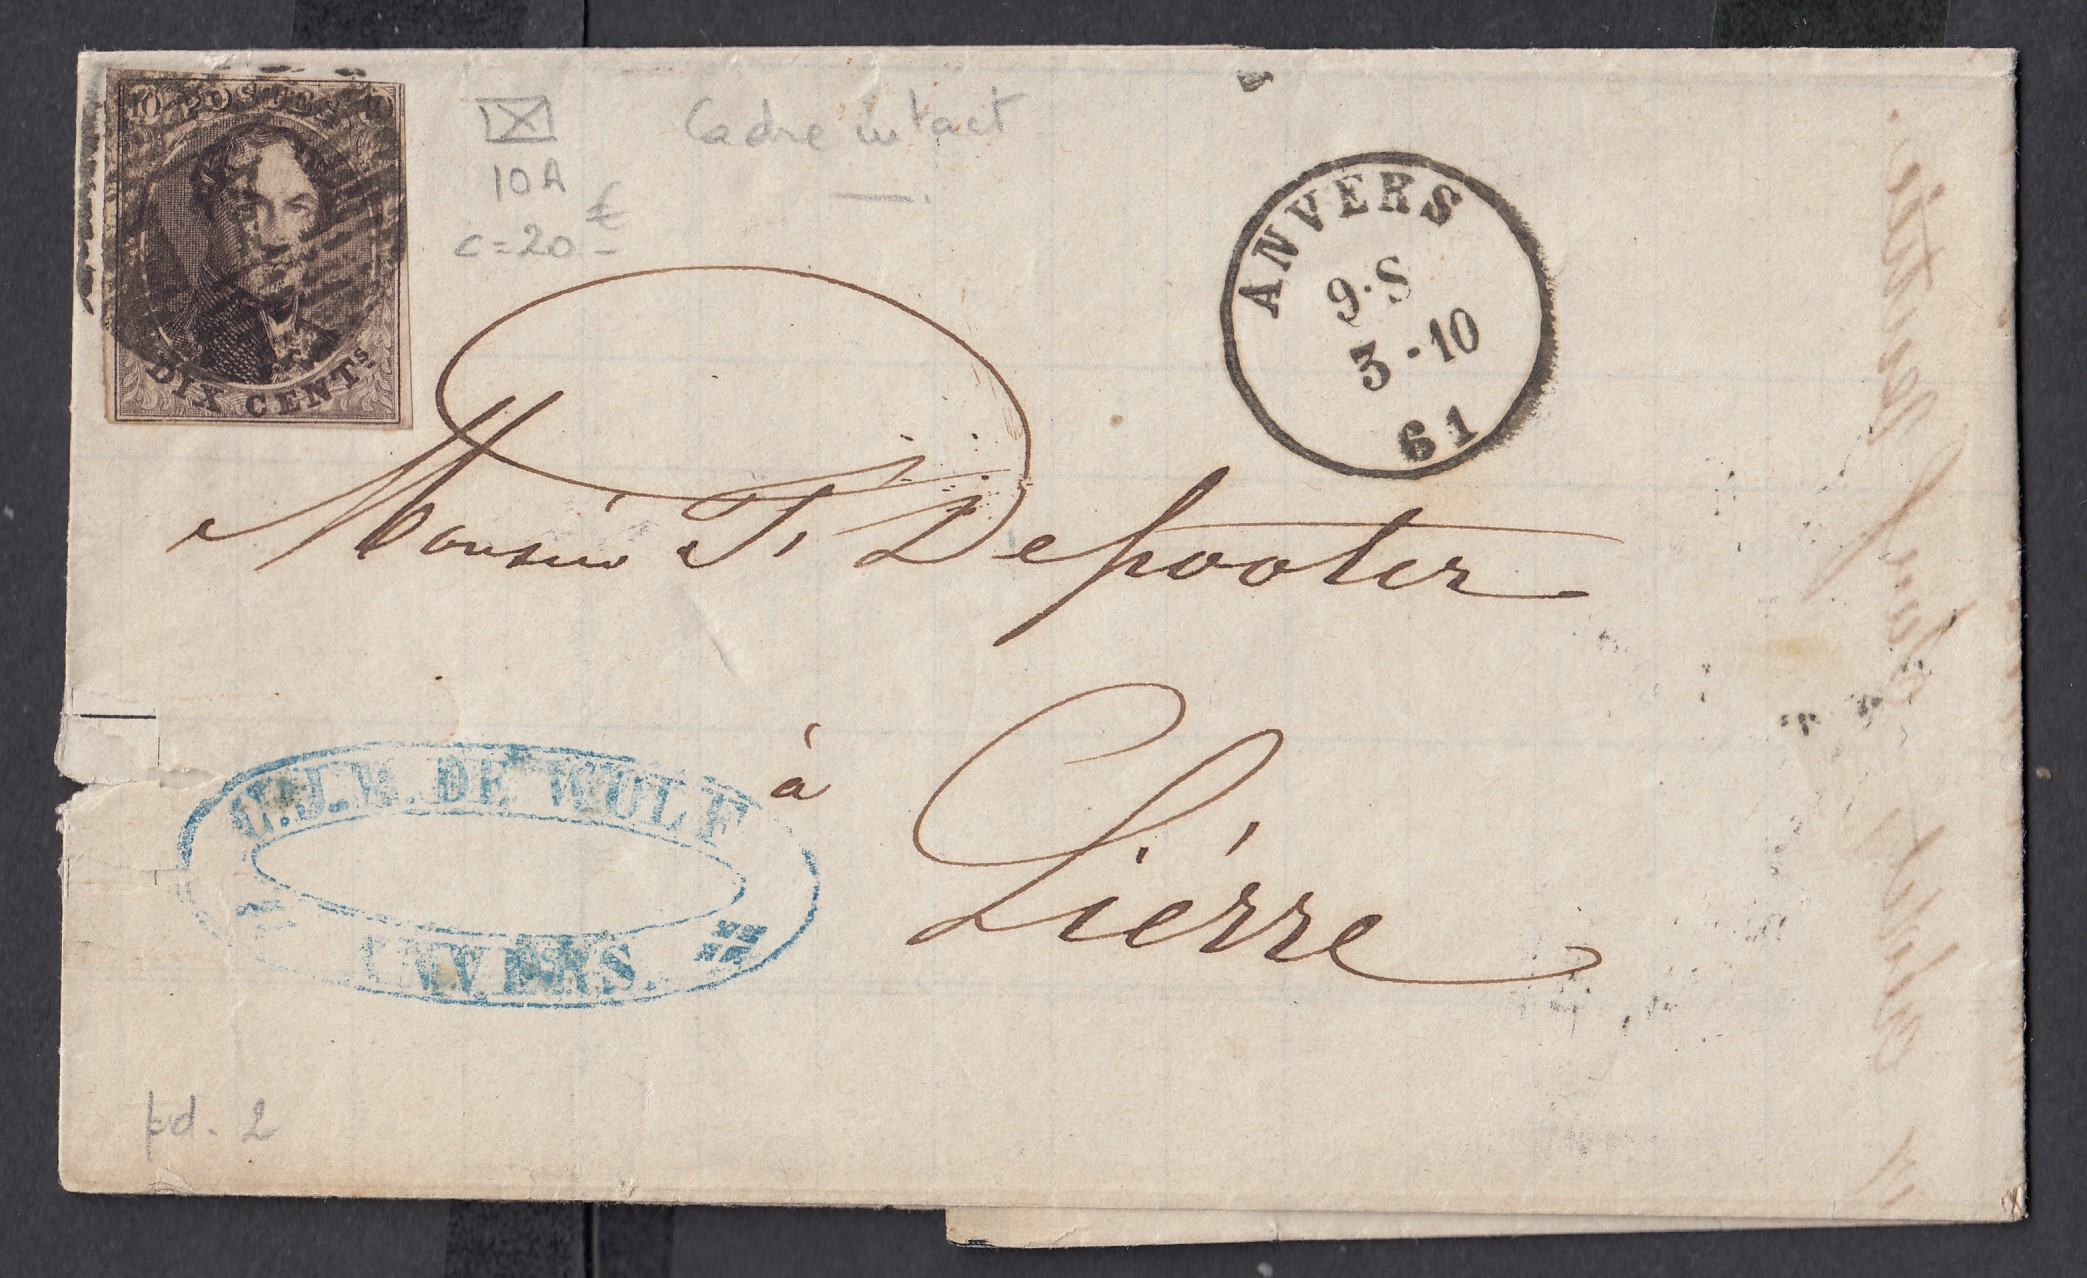 10 POSTES 10
DIX CENTS.
10A
c=20.- €
Cadre intact
ANVERS
9·S
3-10
61
Monsieur F. Depooter
à
Lierre
C.J.M. DE WOLF
ANVERS.
pd. 2